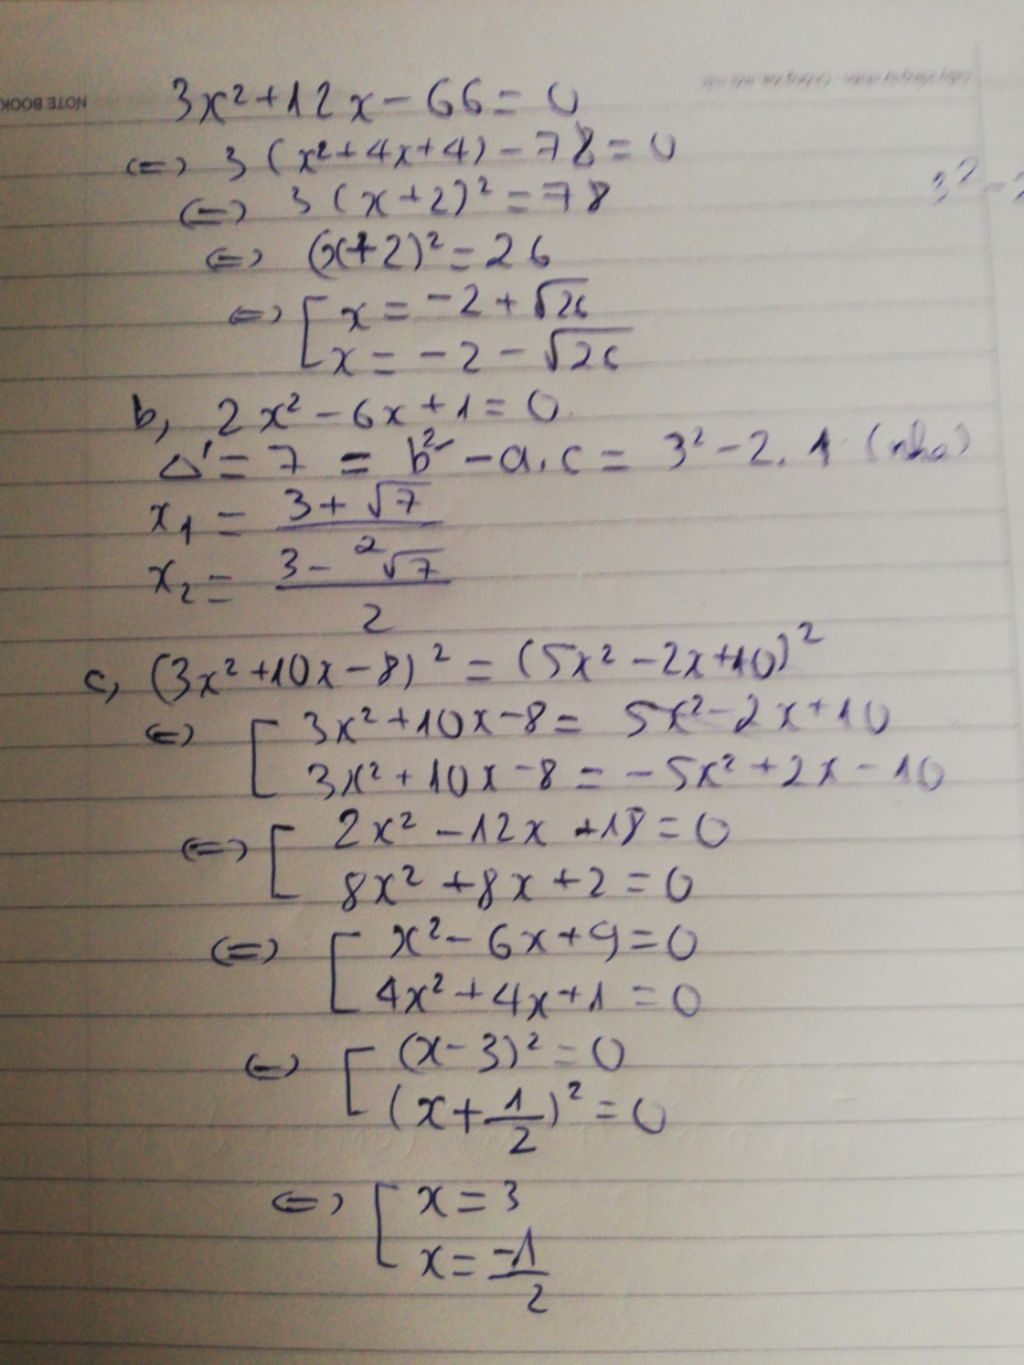 NOTE BOOK
3x² + 12x - 66 = 0
<=> 3 (x² + 4x + 4) - 78 = 0
<=> 3 (x + 2)² = 78
<=> (x + 2)² = 26
<=> [ x = -2 + √26
x = -2 - √26
b, 2x² - 6x + 1 = 0
Δ' = 7 = b'² - a.c = 3² - 2.1 (nha)
x₁ = (3 + √7)/2
x₂ = (3 - √7)/2
c, (3x² + 10x - 8)² = (5x² - 2x + 10)²
<=> [ 3x² + 10x - 8 = 5x² - 2x + 10
3x² + 10x - 8 = -5x² + 2x - 10
<=> [ 2x² - 12x + 18 = 0
8x² + 8x + 2 = 0
<=> [ x² - 6x + 9 = 0
4x² + 4x + 1 = 0
<=> [ (x - 3)² = 0
(x + 1/2)² = 0
<=> [ x = 3
x = -1/2